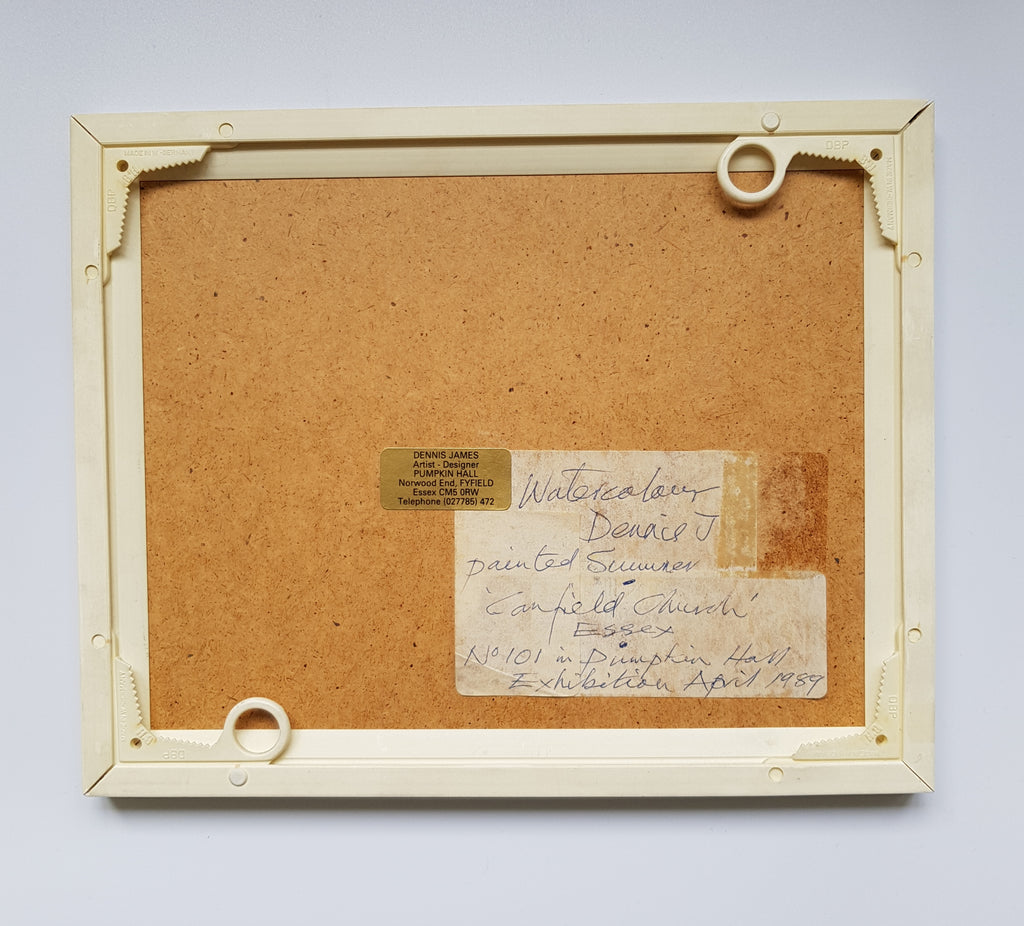 MADE IN W.-GERMANY
DBP
DBP
DENNIS JAMES
Artist - Designer
PUMPKIN HALL
Norwood End, FYFIELD
Essex CM5 0RW
Telephone (027785) 472
Watercolour
Dennis J
painted Summer
'Canfield Church'
Essex
No 101 in Pumpkin Hall
Exhibition April 1989
DBP
DBP